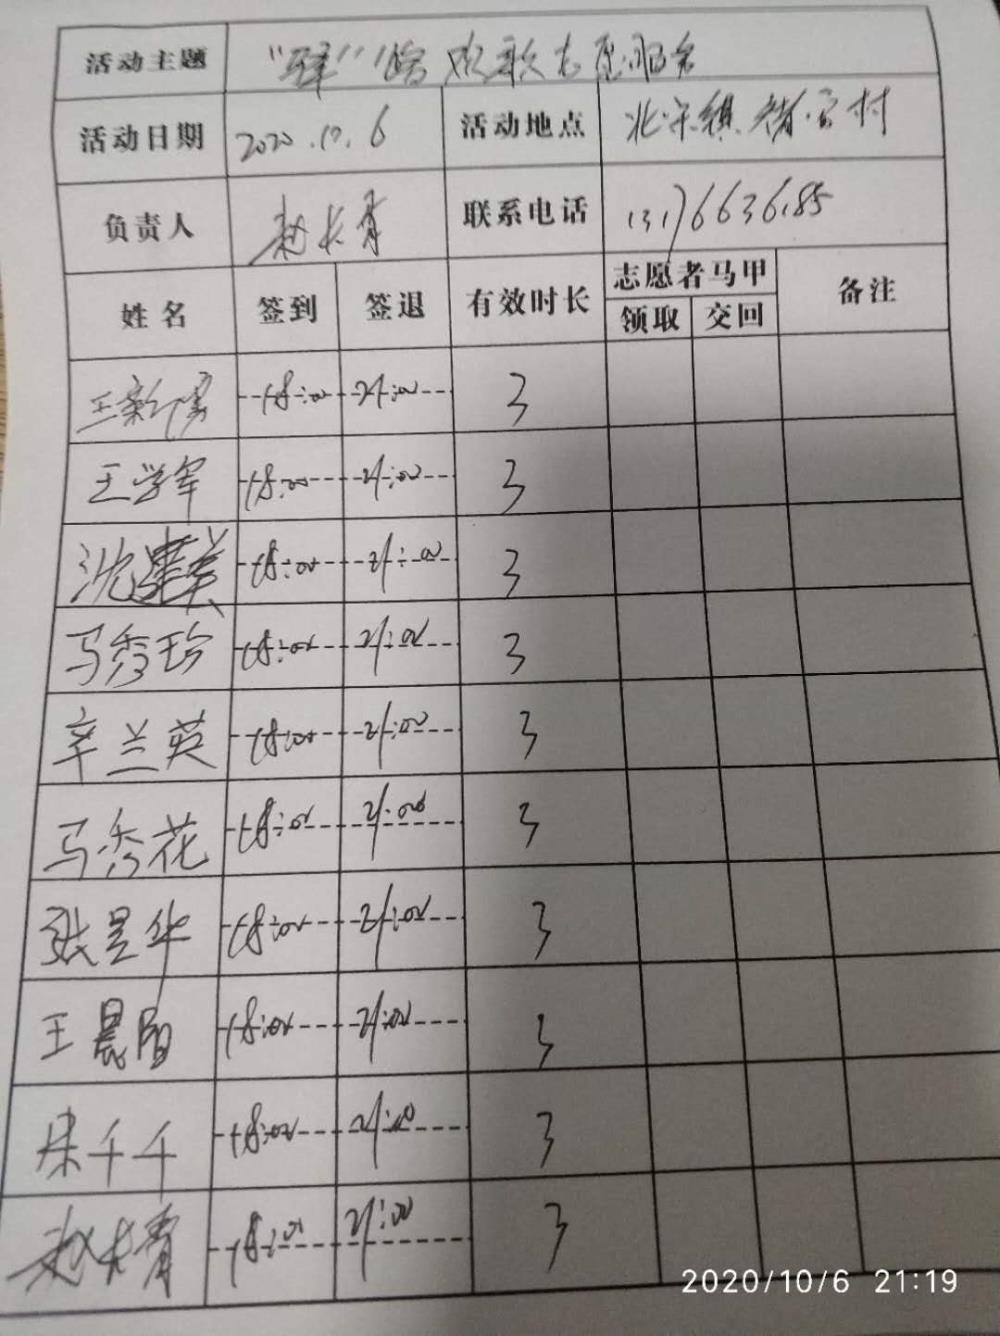 活动主题 "驿"路欢歌志愿服务
活动日期 2020.10.6 活动地点 北宋镇 村
负责人 赵长青 联系电话 13176636185
姓名 签到 签退 有效时长 志愿者马甲 备注
领取 交回
王新 18:00 21:00 3
王学军 18:00 21:00 3
沈建美 18:00 21:00 3
马秀珍 18:00 21:00 3
辛兰英 18:00 21:00 3
马秀花 18:00 21:00 3
张昱华 18:00 21:00 3
王晨 18:00 21:00 3
朱千千 18:00 21:00 3
赵长青 18:00 21:00 3
2020/10/6 21:19